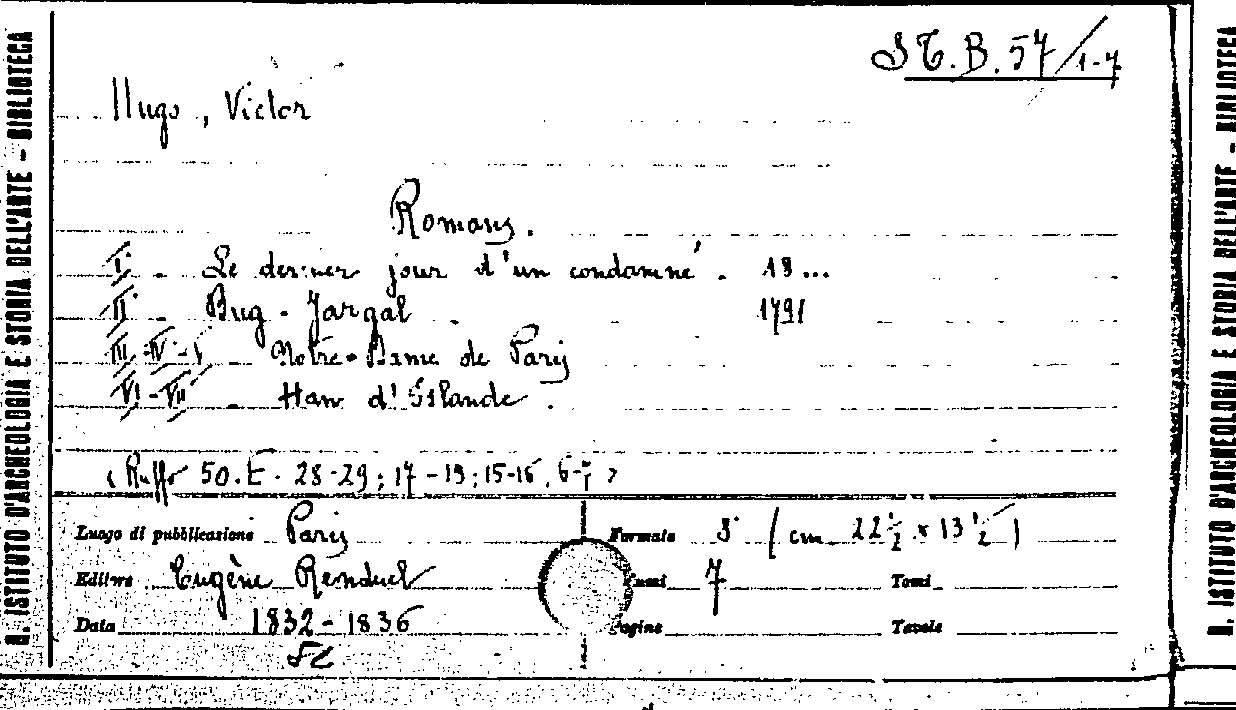 R. ISTITUTO D'ARCHEOLOGIA E STORIA DELL'ARTE - BIBLIOTECA
ST. B. 57/1-7
Hugo, Victor
Romans.
I. - Le dernier jour d'un condamné. 18...
II. - Bug-Jargal. 1791
III-IV-V - Notre-Dame de Paris
VI-VII - Han d'Islande.
(Ruffo 50. E. 28-29; 17-19; 15-16, 6-7)
Luogo di pubblicazione Paris Formato 8° (cm 22 1/2 x 13 1/2)
Editore Eugène Renduel 7 Tomi
Data 1832-1836 Pagine Tavole
R. ISTITUTO D'ARCHEOLOGIA E STORIA DELL'ARTE - BIBLIOTECA